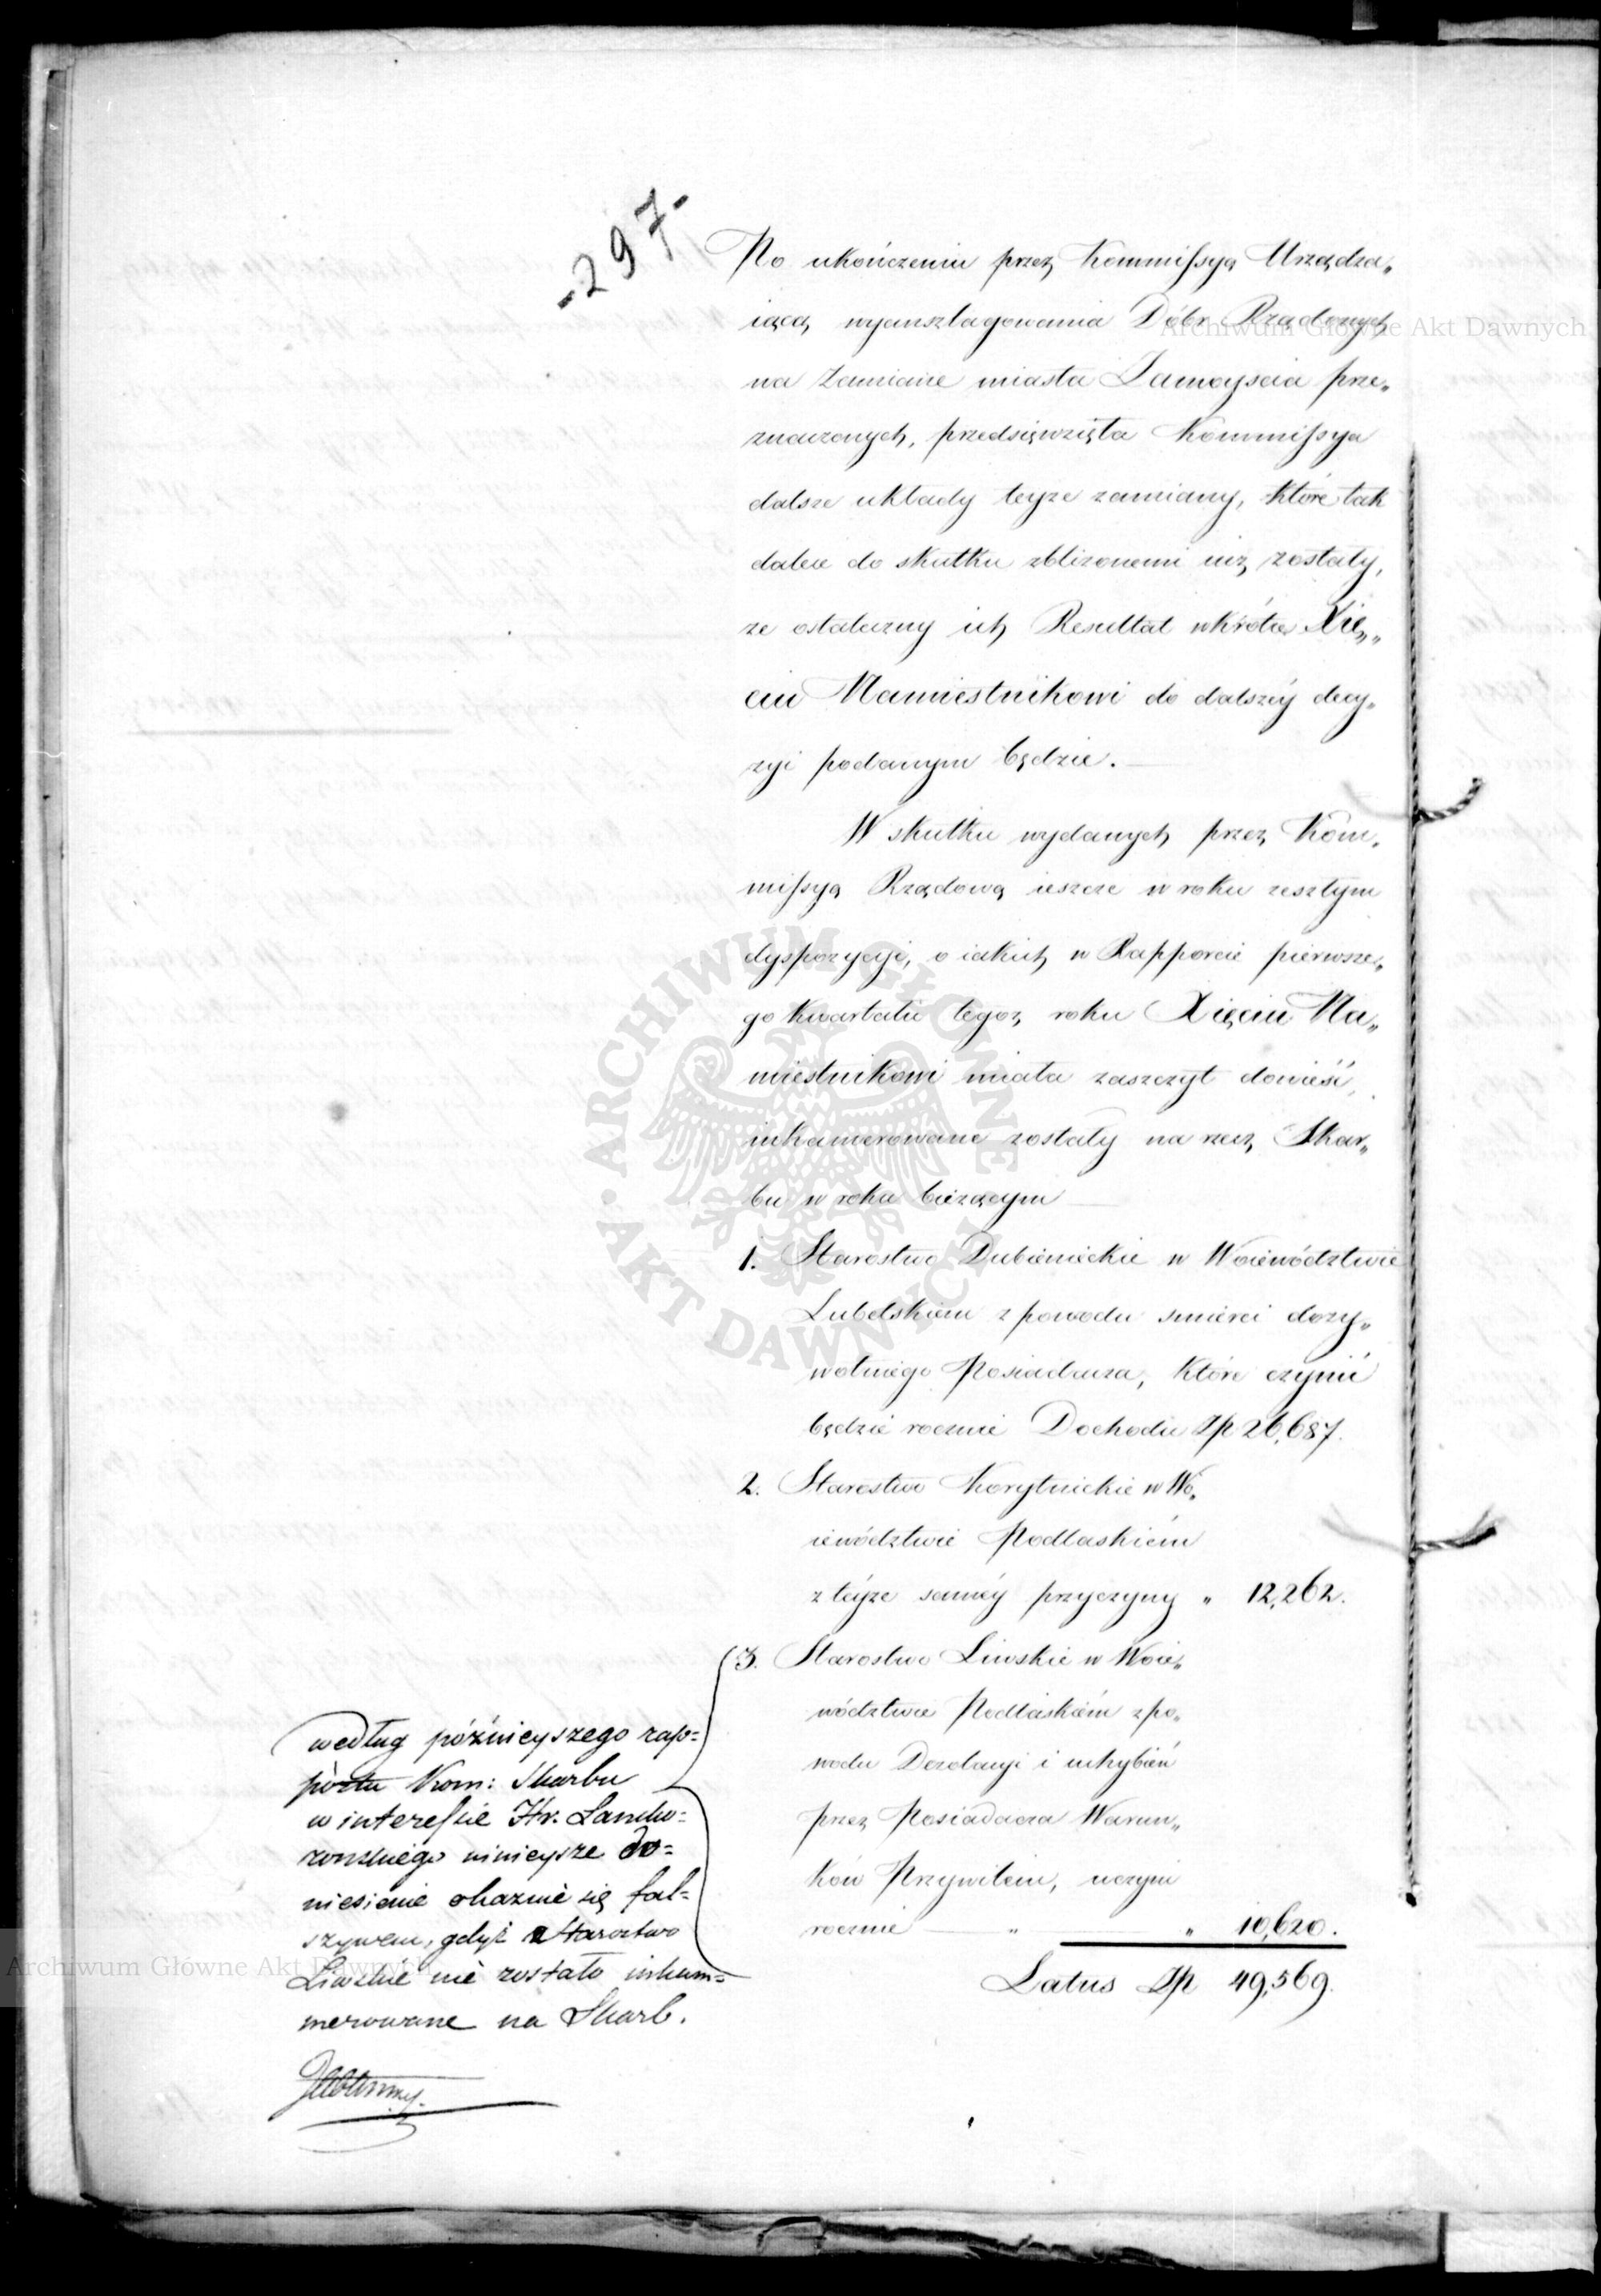 -297-
Po ukończeniu przez Kommissyą Urządza„
iącą wyanszlagowania Dóbr Rządowych
na Zamianę miasta Zamoyscia prze„
znaczonych, przedsięwzięła Kommissya
dalsze układy teyże zamiany, które tak
dalece do skutku zbliżonemi iuż zostały,
że ostateczny ich Resultat wkrótce Xię„
ciu Namiestnikowi do dalszéy decy„
zyi podanym będzie.
W skutku wydanych przez Kom„
missyą Rządową ieszcze w roku zeszłym
dyspozycyi, o iakich w Rapporcie pierwsze„
go kwartału tegoż roku Xięciu Na„
miestnikowi miała zaszczyt donieść,
inkamerowane zostały na rzecz Skar„
bu w roku bieżącym
1. Starostwo Dubienieckie w Woiewództwie
Lubelskiem z powodu śmierci doży„
wotniego Posiadacza, które czynić
będzie rocznie Dochodu Zp 26,687.
2. Starostwo Korytnickie w Wo„
iewództwie Podlaskiém
z téyże saméy przyczyny „ 12,262.
3. Starostwo Liwskie w Woie„
wództwie Podlaskiém z po„
wodu Dezolacyi i uchybień
przez Posiadacza Warun„
ków Przywileiu, uczyni
rocznie „ „ 10,620.
Latus Zp 49,569.
według późnieyszego rapo=
portu Kom: Skarbu
w interessie Hr. Lancko=
rońskiego ninieysze do=
niesienie okazuie się fał=
szywem, gdyż Starostwo
Liwskie nie zostało inkam=
merowane na Skarb.
Archiwum Główne Akt Dawnych
ARCHIWUM GŁÓWNE
AKT DAWNYCH
Archiwum Główne Akt Dawnych